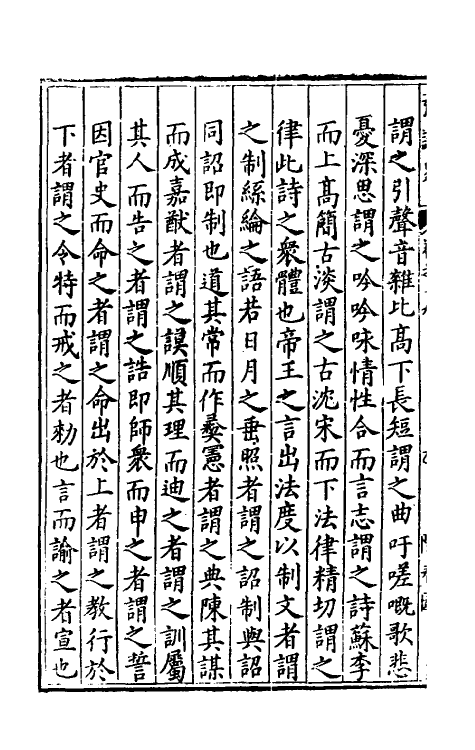 謂之引聲音雜比髙下長短謂之曲吁嗟嘅歌悲
憂深思謂之吟吟咏情性合而言志謂之詩蘇李
而上髙簡古淡謂之古沈宋而下法律精切謂之
律此詩之衆體也帝王之言出法度以制文者謂
之制絲綸之語若日月之垂照者謂之詔制與詔
同詔即制也道其常而作彞憲者謂之典陳其謀
而成嘉猷者謂之謨順其理而迪之者謂之訓屬
其人而告之者謂之誥即師衆而申之者謂之誓
因官史而命之者謂之命出於上者謂之教行於
下者謂之令特而戒之者勑也言而諭之者宣也